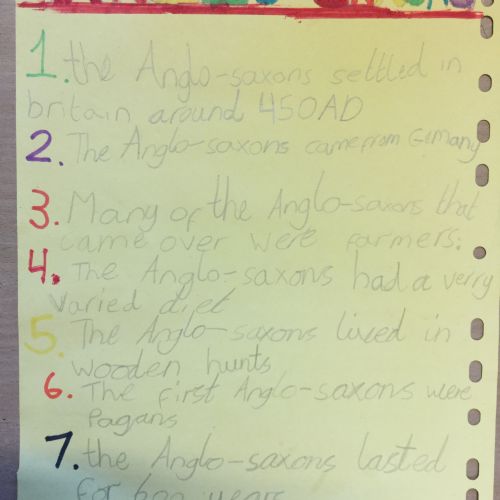 1. the Anglo-saxons settled in
britain around 450AD
2. The Anglo-saxons came from Germany
3. Many of the Anglo-saxons that
came over were farmers.
4. The Anglo-saxons had a verry
varied diet
5. The Anglo-saxons lived in
wooden hunts
6. The first Anglo-saxons were
Pagans
7. the Anglo-saxons lasted
for 600 years